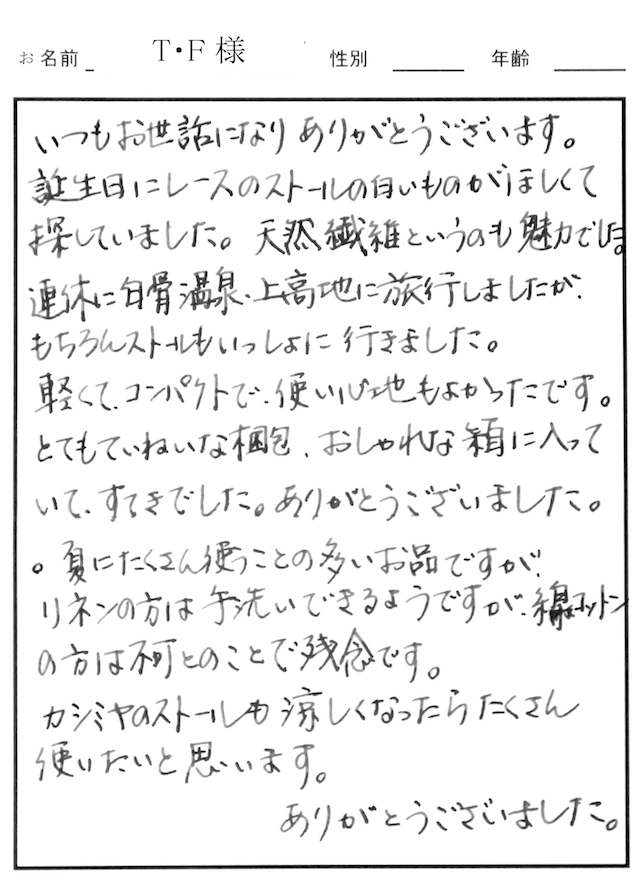 お名前 T・F様 性別 年齢
いつもお世話になり ありがとうございます。
誕生日にレースのストールの白いものがほしくて
探していました。天然繊維というのも魅力でした。
連休に白骨温泉、上高地に旅行しましたが、
もちろんストールもいっしょに行きました。
軽くて、コンパクトで、使い心地もよかったです。
とてもていねいな梱包、おしゃれな箱に入って
いて、すてきでした。ありがとうございました。
。夏にたくさん使うことの多いお品ですが、
リネンの方は手洗いできるようですが、綿コットン
の方は不可とのことで残念です。
カシミヤのストールも涼しくなったらたくさん
使いたいと思います。
ありがとうございました。